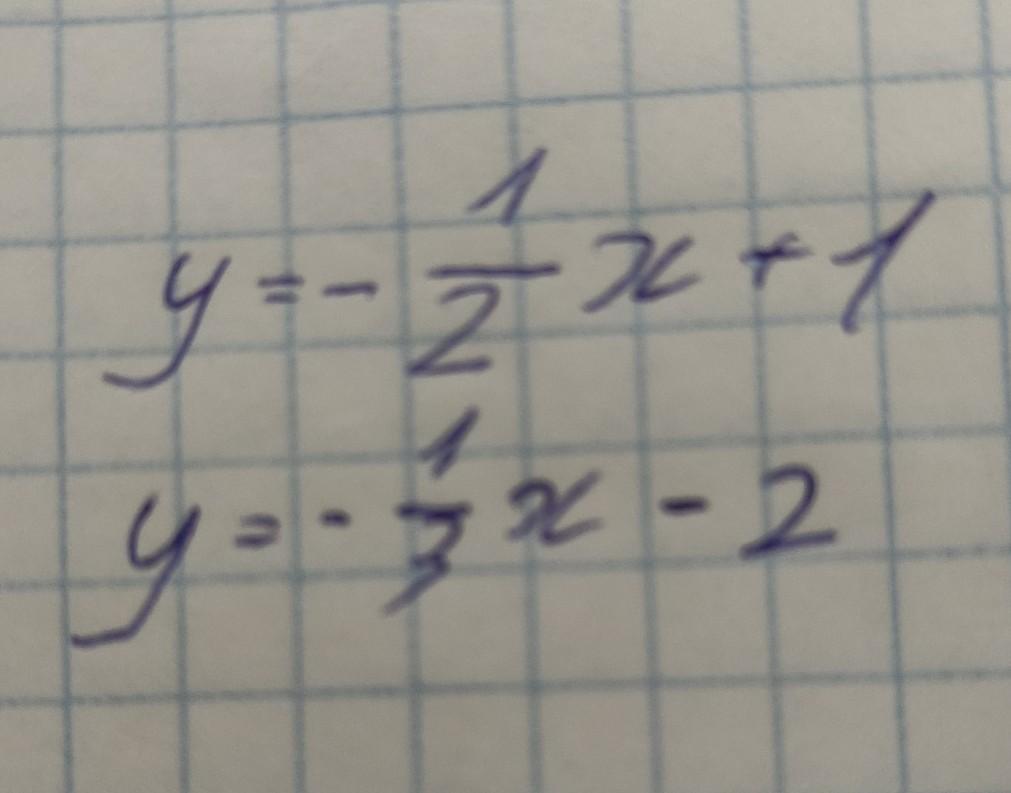 y = - 1/2 x + 1
y = - 1/3 x - 2